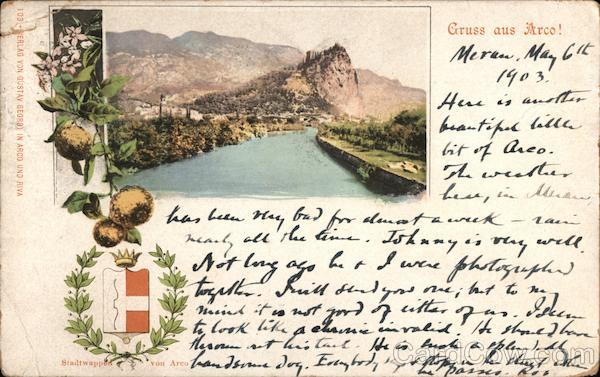 Gruss aus Arco!
Meran, May 6th
1903.
Here is another
beautiful little
bit of Arco.
The weather
here, in Meran,
has been very bad for almost a week – rain
nearly all the time. Johnny is very well.
Not long ago he & I were photographed
together. I will send you one; but to my
mind it is not good of either of us. I seem
to look like a chronic invalid. He should have
thrown out his tail. He is such a splendidly
handsome dog. Everybody in the street when
he passes.
103 - VERLAG VON GUSTAV GEORGI IN ARCO UND RIVA
Stadtwappen von Arco
CardCow.com